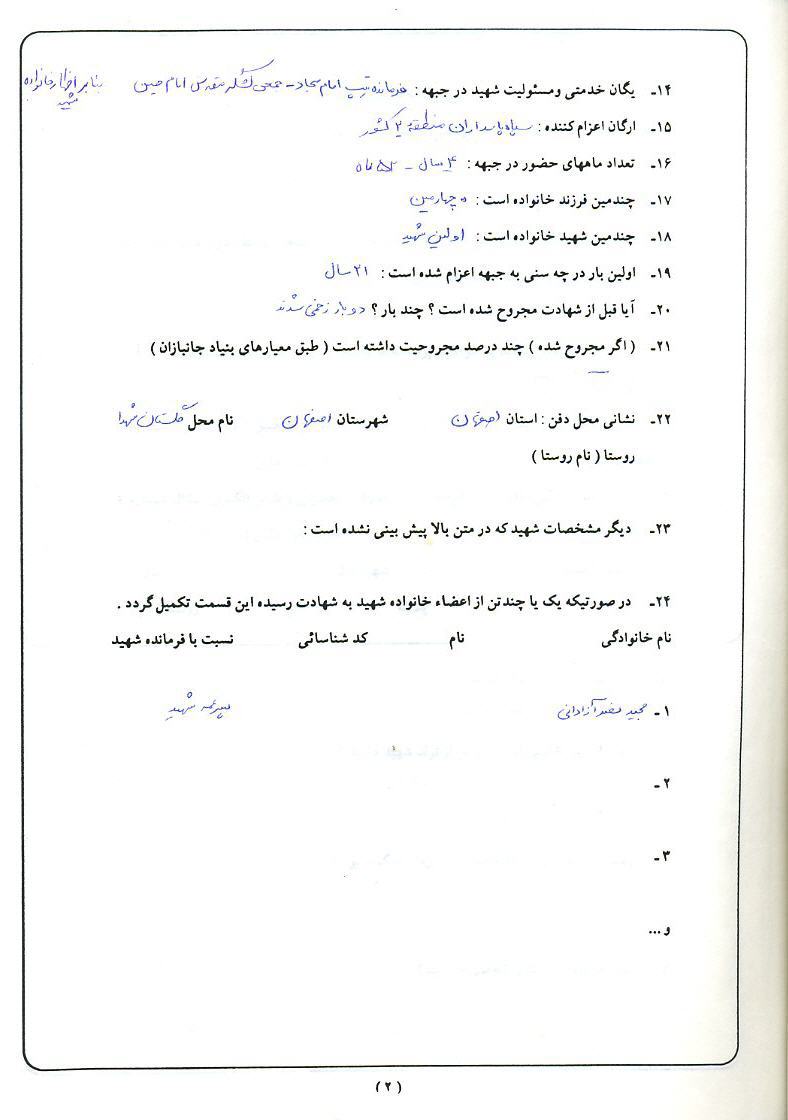 ۱۴ـ یگان خدمتی ومسئولیت شهید در جبهه : فرمانده تیپ امام سجاد – جمعی لشکر مقدس امام حسین بنا بر اظهار خانواده شهید
۱۵ـ ارگان اعزام کننده : سپاه پاسداران منطقه ۲ کشور
۱۶ـ تعداد ماههای حضور در جبهه : ۴ سال – ۵۲ ماه
۱۷ـ چندمین فرزند خانواده است : چهارمین
۱۸ـ چندمین شهید خانواده است : اولین شهید
۱۹ـ اولین بار در چه سنی به جبهه اعزام شده است : ۲۱ سال
۲۰ـ آیا قبل از شهادت مجروح شده است ؟ چند بار ؟ دو بار زخمی شدند
۲۱ـ ( اگر مجروح شده ) چند درصد مجروحیت داشته است ( طبق معیارهای بنیاد جانبازان )
—
۲۲ـ نشانی محل دفن : استان اصفهان شهرستان اصفهان نام محل گلستان شهدا
روستا ( نام روستا )
۲۳ـ دیگر مشخصات شهید که در متن بالا پیش بینی نشده است :
۲۴ـ در صورتیکه یک یا چندتن از اعضاء خانواده شهید به شهادت رسیده این قسمت تکمیل گردد .
نام خانوادگی نام کد شناسائی نسبت با فرمانده شهید
۱ـ مجید آزادانی پسر عمه شهید
۲ـ
۳ـ
و...
(۲)